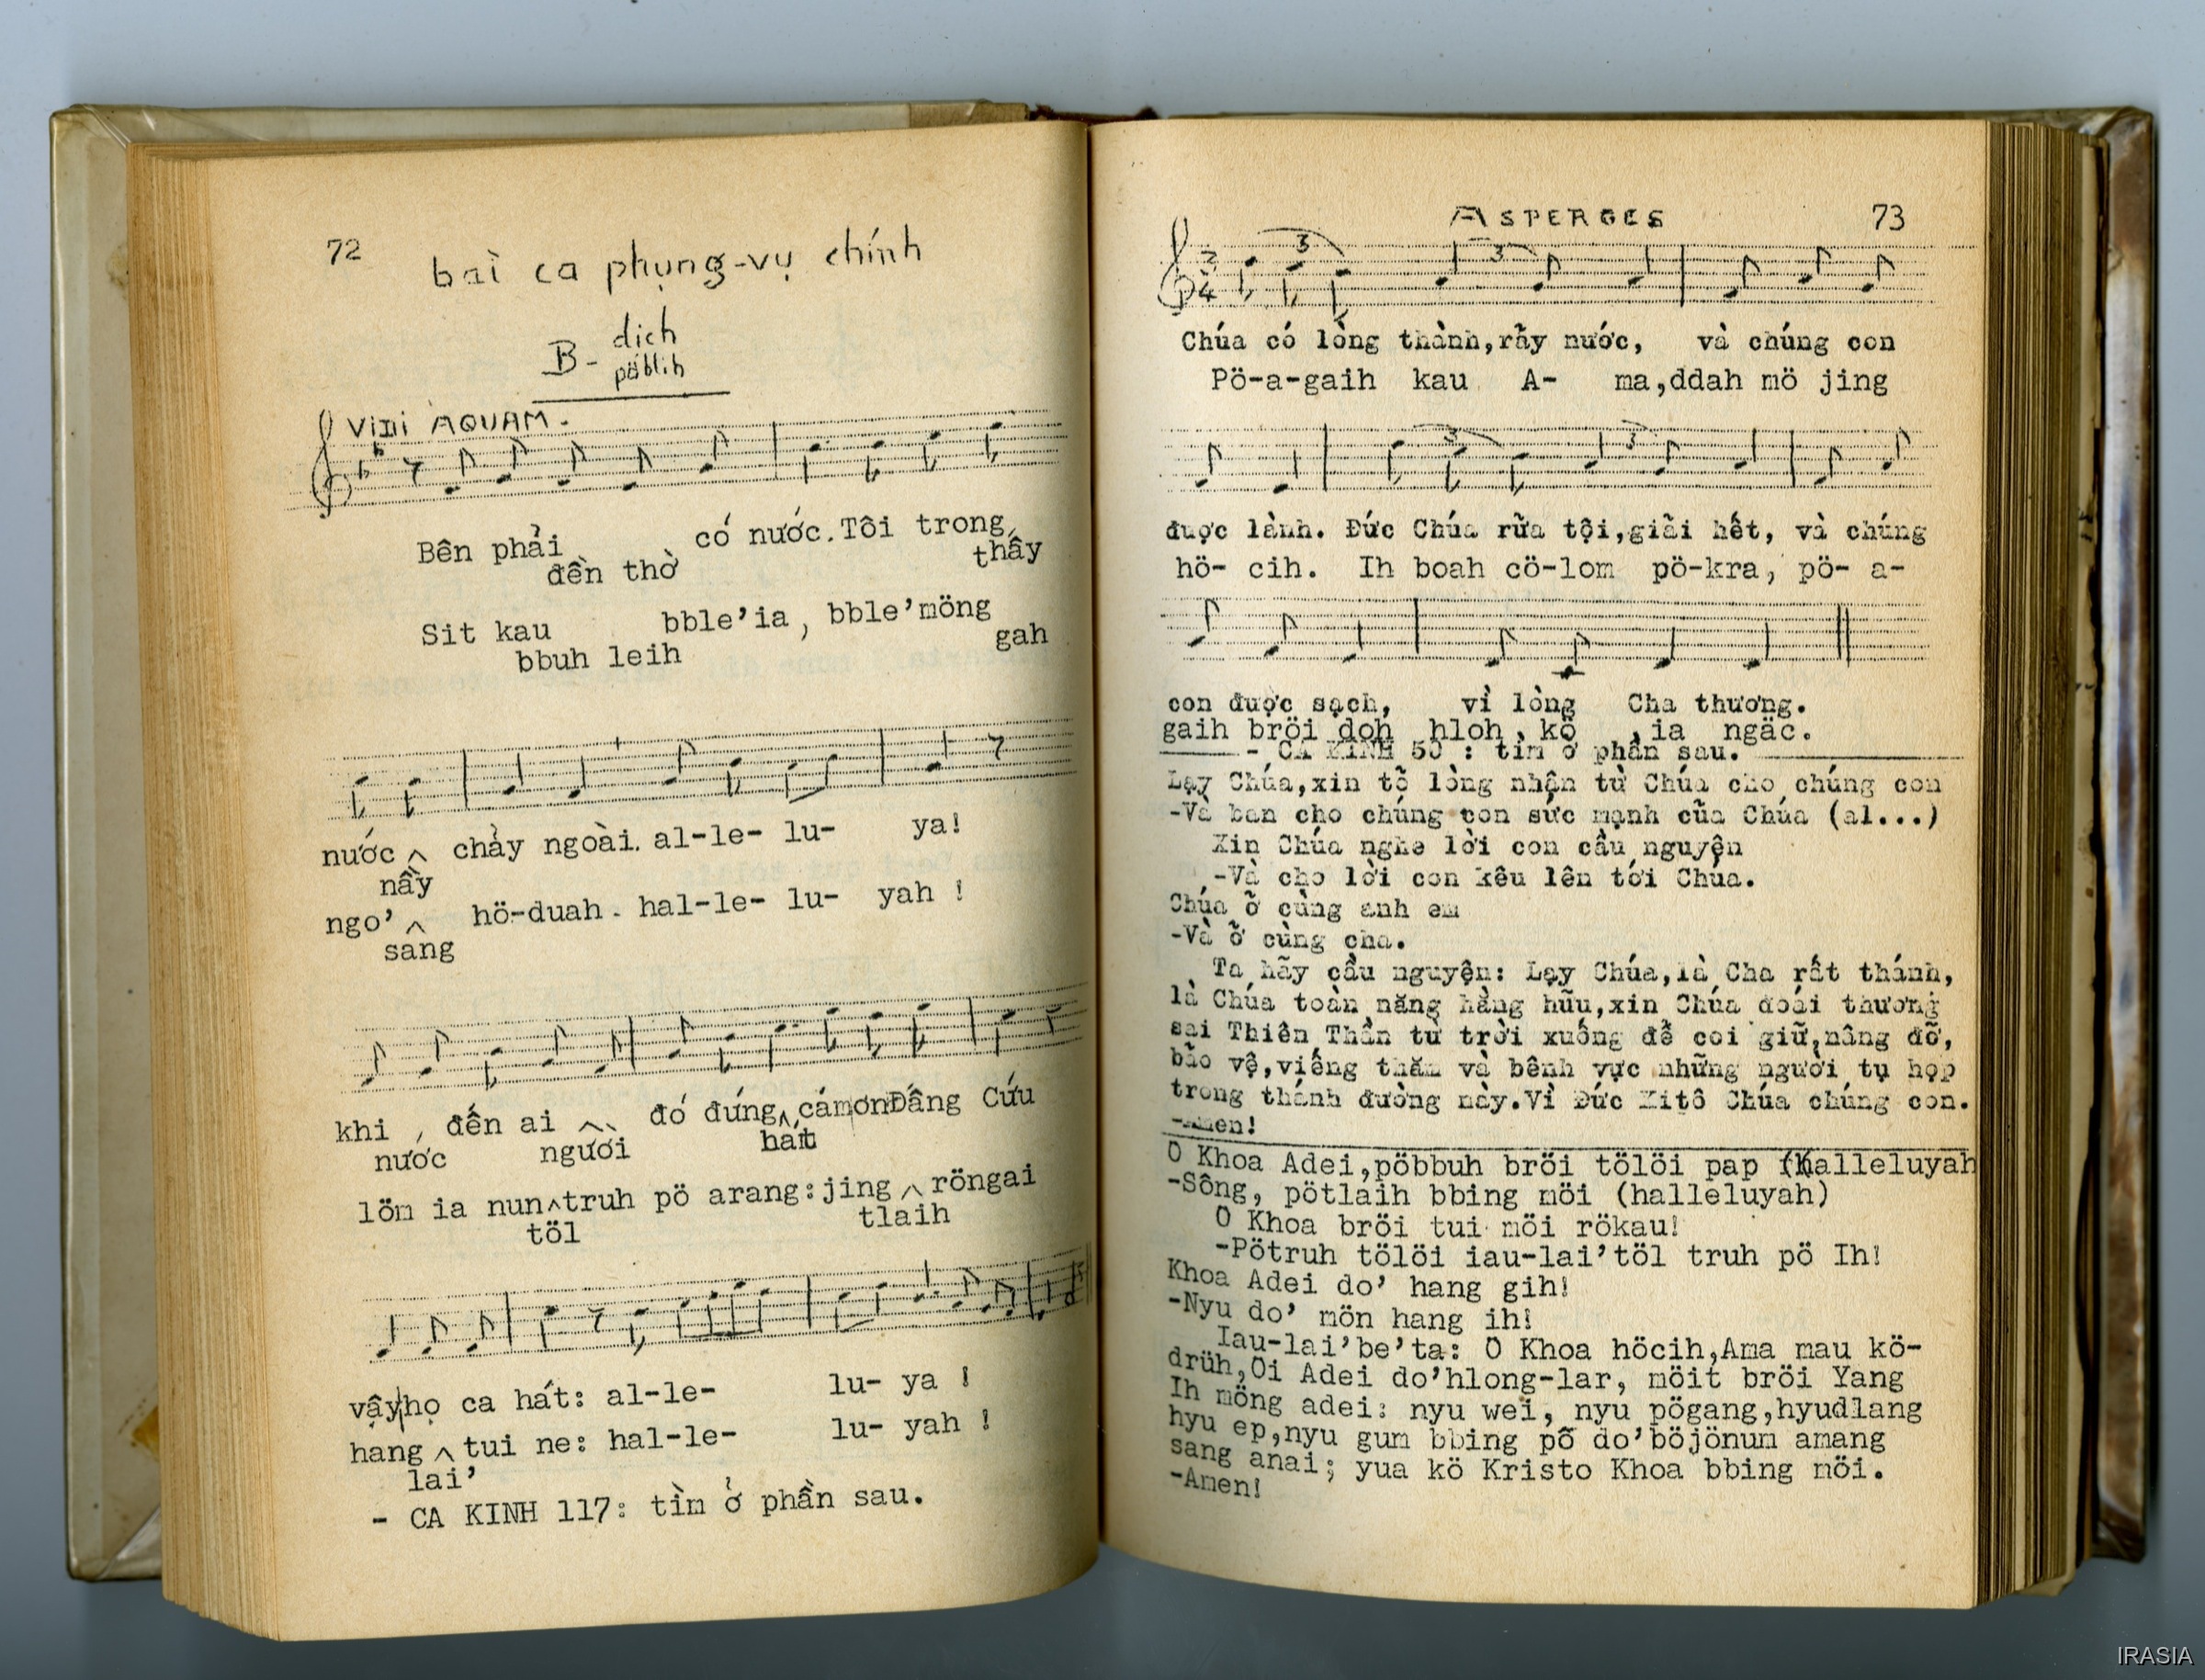 72
bài ca phụng-vụ chính
B- dich
pöblih
VIDI AQUAM.
Bên phải đền thờ có nước. Tôi trong thấy
Sit kau bbuh leih bble'ia, bble'möng gah
nước nầy chảy ngoài. al-le- lu- ya!
ngo' sang hö-duah. hal-le- lu- yah !
khi nước đến ai người đó đứng hát cámơnĐấng Cứu
löm ia nun töl truh pö arang: jing tlaih röngai
vậy họ ca hát: al-le- lu- ya !
hang lai' tui ne: hal-le- lu- yah !
- CA KINH 117: tìm ở phần sau.
ASPERGES 73
3 3
2
4
Chúa có lòng thành, rãy nước, và chúng con
Pö-a-gaih kau A- ma, ddah mö jing
3 3
được lành. Đức Chúa rữa tội, giãi hết, và chúng
hö- cih. Ih boah cö-lom pö-kra, pö- a-
con được sạch, vì lòng Cha thương.
gaih bröi doh hloh kö ia ngäc.
- CA KINH 50 : tìm ở phần sau.
Lạy Chúa, xin tõ lòng nhận từ Chúa cho chúng con
-Và ban cho chúng con sức mạnh cũa Chúa (al...)
Xin Chúa nghe lời con cầu nguyện
-Và cho lời con kêu lên tới Chúa.
Chúa ỡ cùng anh em
-Và ỡ cùng cha.
Ta hãy cầu nguyện: Lạy Chúa, là Cha rất thánh,
là Chúa toàn năng hằng hữu, xin Chúa đoái thương
sai Thiên Thần từ trời xuống để coi giữ, nâng đỡ,
bão vệ, viếng thăm và bênh vực những người tụ họp
trong thánh đường này. Vì Đức Kitô Chúa chúng con.
-Amen!
O Khoa Adei, pöbbuh bröi tölöi pap (halleluyah
-Sông, pötlaih bbing möi (halleluyah)
O Khoa bröi tui möi rökau!
-Pötruh tölöi iau-lai'töl truh pö Ih!
Khoa Adei do' hang gih!
-Nyu do' mön hang ih!
Iau-lai'be'ta: O Khoa höcih, Ama mau kö-
drüh, Oi Adei do'hlong-lar, möit bröi Yang
Ih möng adei: nyu wei, nyu pögang, hyudlang
hyu ep, nyu gum bbing pô do'böjönum amang
sang anai; yua kö Kristo Khoa bbing möi.
-Amen!
IRASIA